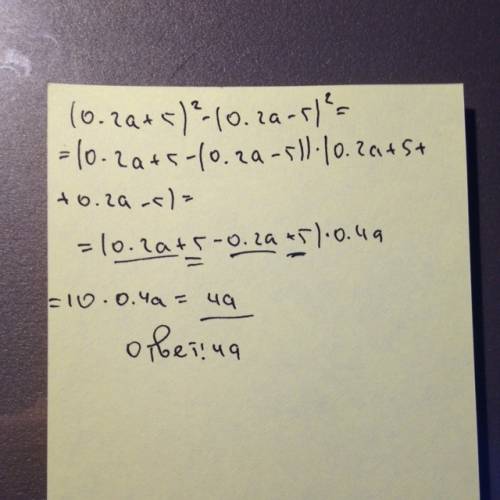 (0.2a+5)²-(0.2a-5)²=
=(0.2a+5-(0.2a-5))·(0.2a+5+
+0.2a-5)=
=(0.2a+5-0.2a+5)·0.4a
=10·0.4a=4a
Ответ: 4a